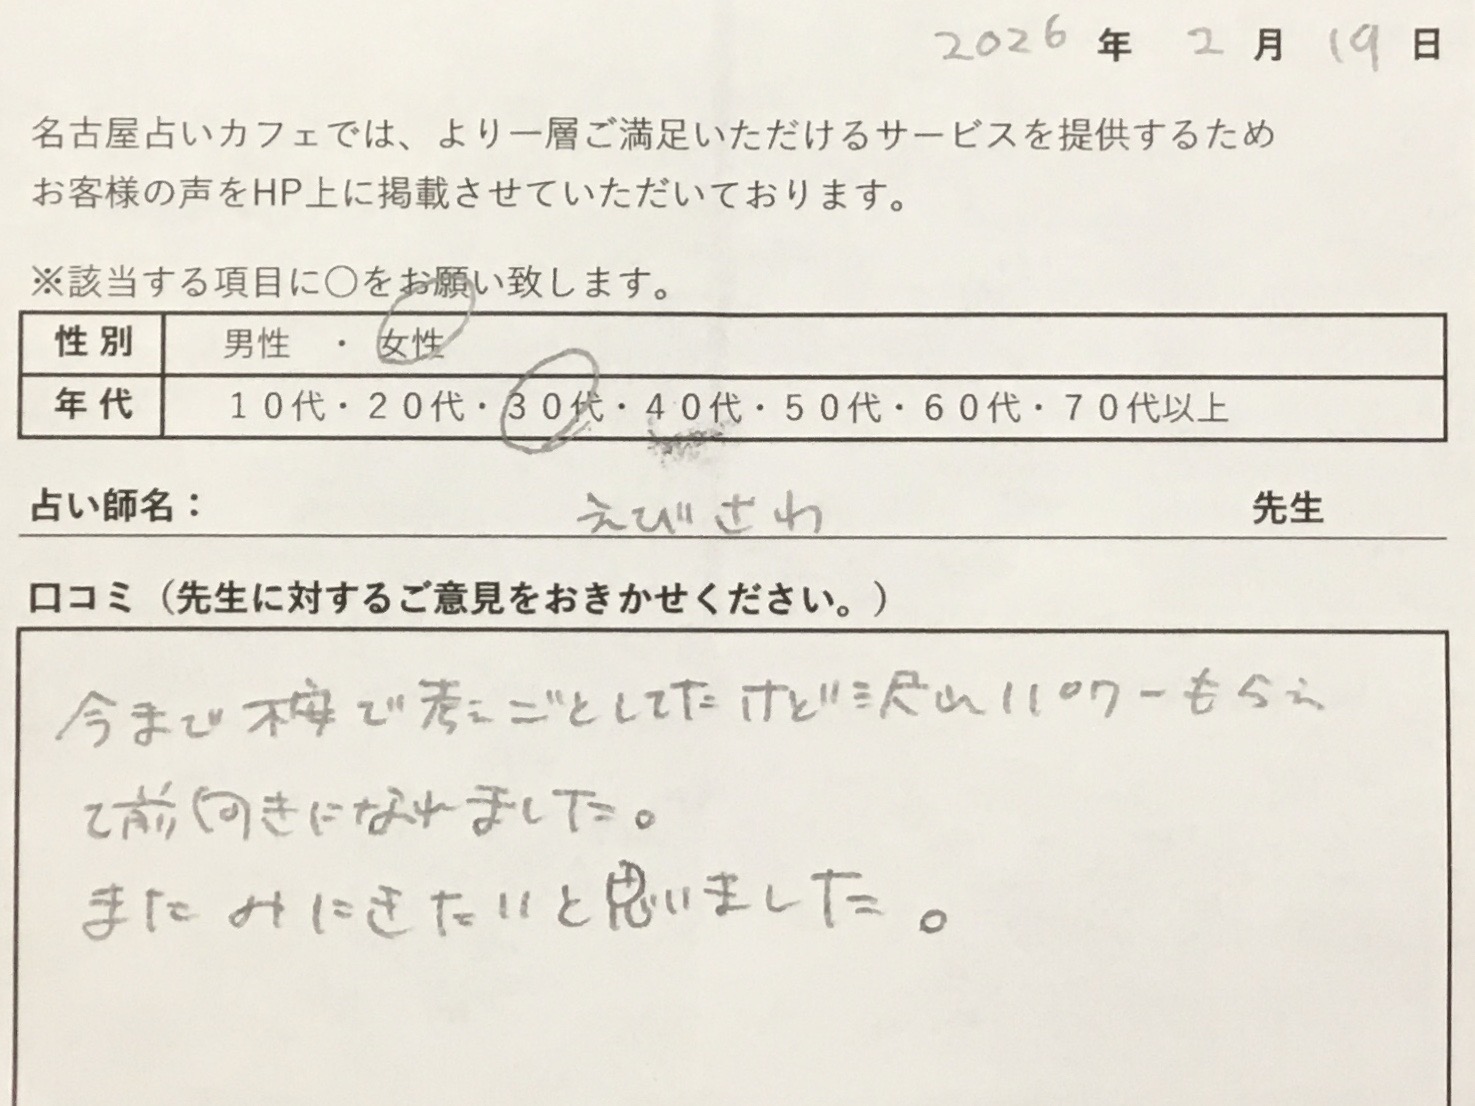 2026 年 2 月 19 日
名古屋占いカフェでは、より一層ご満足いただけるサービスを提供するため
お客様の声をHP上に掲載させていただいております。
※該当する項目に〇をお願い致します。
性別 男性 ・ 女性
年代 10代・20代・30代・40代・50代・60代・70代以上
占い師名： えびさわ 先生
口コミ（先生に対するご意見をおきかせください。）
今まで不安で考えごとしてたけど沢山パワーもらえ
て前向きになれました。
またみにきたいと思いました。